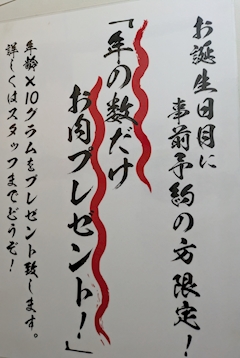 お誕生日月に
事前予約の方限定!
「年の数だけ
お肉プレゼント!」
年齢×10グラムをプレゼント致します。
詳しくはスタッフまでどうぞ!